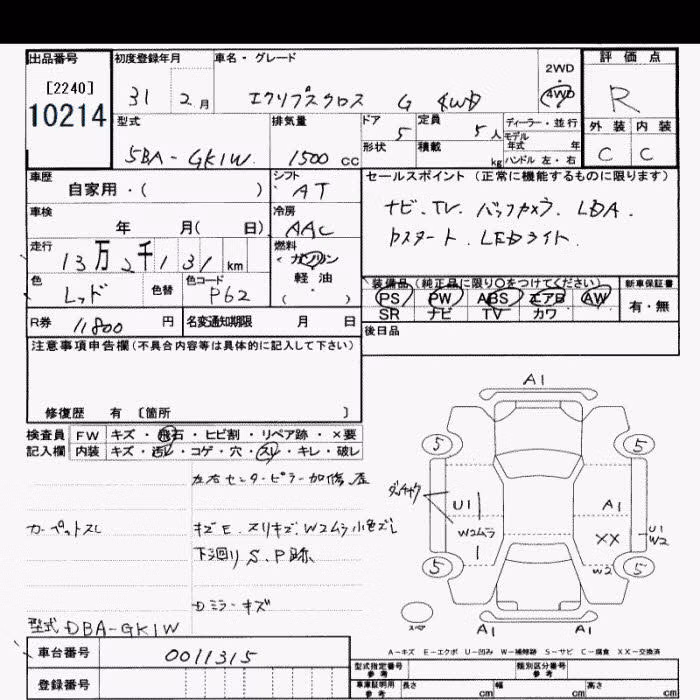 出品番号 初度登録年月 車名・グレード 2WD ・ 4WD 評価点
[2240] 31 2月 エクリプスクロス G 4WD R
10214 型式 排気量 ドア 5 定員 5人 ディーラー・並行 外装 内装
5BA-GK1W 1500cc 形状 積載 kg モデル年式 年 ハンドル 左・右 C C
車歴 シフト セールスポイント (正常に機能するものに限ります)
自家用・( ) AT ナビ、TV、バックカメラ、LDA、
車検 冷房
年 月( 日) AAC スタート LEDライト
走行 燃料
13万2千131km ガソリン
軽油
( )
色 色替 色コード 装備品(純正品に限り○をつけてください) 新車保証書
レッド P62 PS PW ABS エアB AW 有・無
SR ナビ TV カワ
R券 11800円 名変通知期限 月 日 後日品
注意事項申告欄(不具合内容等は具体的に記入して下さい)
修復歴 有 〔箇所 〕
検査員 FW キズ・飛石・ヒビ割・リペア跡・×要
記入欄 内装 キズ・汚レ・コゲ・穴・スレ・キレ・破レ
左右センターピラー加修歴
カーペットスレ キズE、スリキズ、W2ムラ小色ズレ
下廻りS、P跡
Dミラーキズ
型式 DBA-GK1W
A1
5 5
U1 A1
W2ムラ XX U1 W2
5 W2 5
スペア A1 A1
A-キズ E-エクボ U-凹み W-補修跡 S-サビ C-腐食 XX-交換済
車台番号 0011315
登録番号
型式指定番号 参考 類別区分番号 参考
車庫証明用 参考 長さ cm 幅 cm 高さ cm